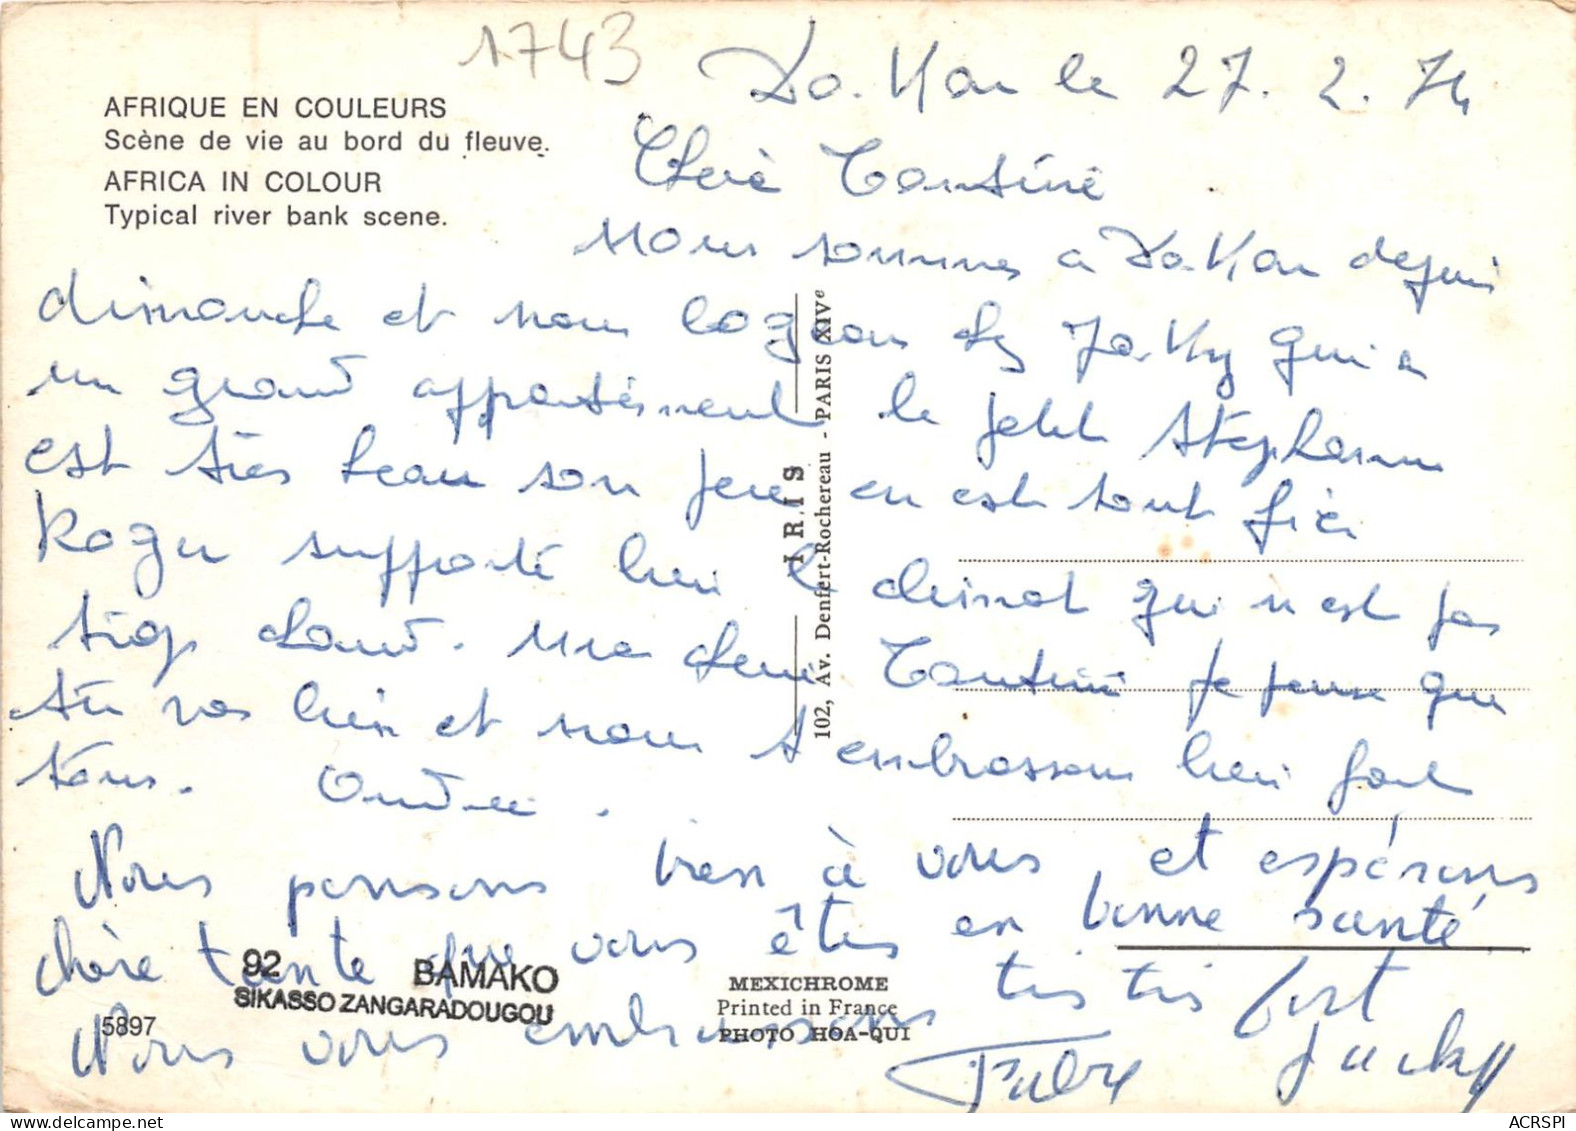 1743
AFRIQUE EN COULEURS
Scène de vie au bord du fleuve.
AFRICA IN COLOUR
Typical river bank scene.
Da.Kar le 27.2.74
Chere Tantine
nous sommes a Da.Kar depuis
dimanche et nous logeons chez Jacky qui a
un grand appartement le petit Stephane
est très beau son pere en est tout fier
Roger supporte bien le climat qui n'est pas
trop chaud. Ma chere Tantine je pense que
tu vas bien et nous t'embrassons bien fort
tous. Andree.
Nous pensons bien à vous, et espérons
chère tante que vous êtes en bonne santé
Nous vous embrassons très très fort
Jacky
I R I S
102, Av. Denfert-Rochereau - PARIS XIVe
92 BAMAKO
SIKASSO ZANGARADOUGOU
5897
MEXICHROME
Printed in France
PHOTO HOA-QUI
ACRSPI